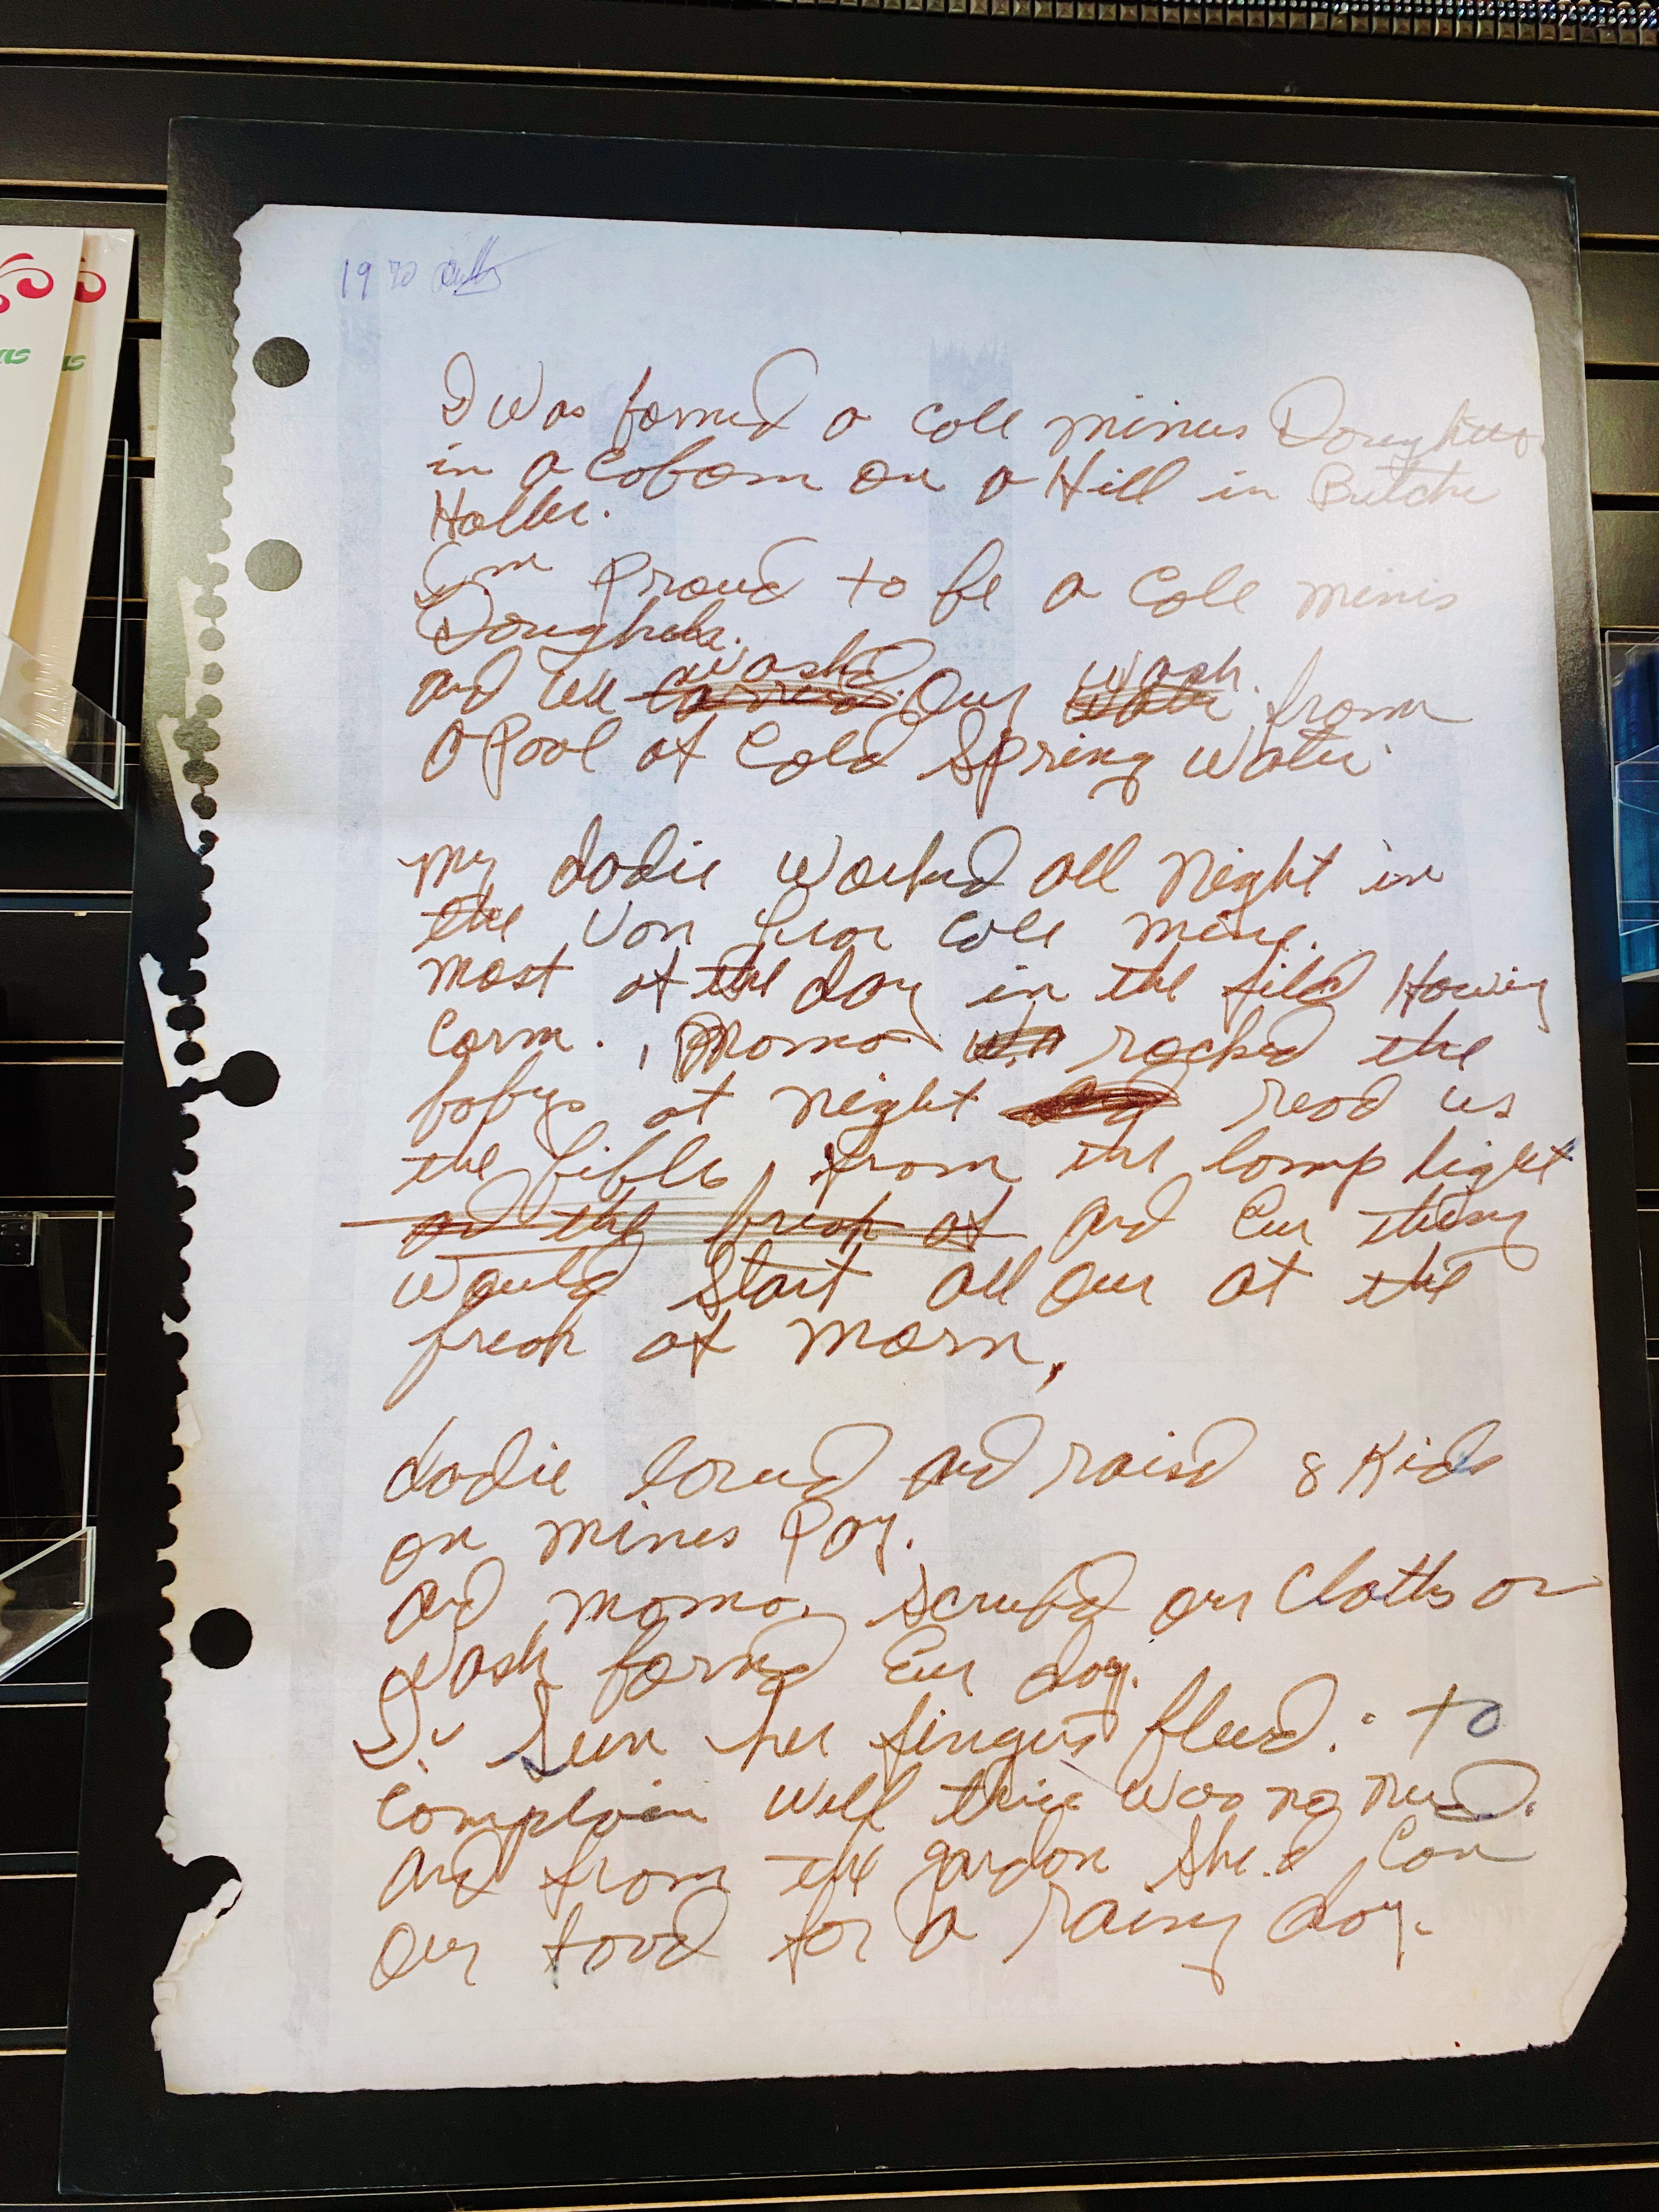 1970
I was borned a Cole minus Doughter
in a Cobom on a Hill in Butche
Holler.
I'm Proud to be a Cole minis
Doughter.
washed wash.
and we carried our water from
a Pool of Cold Spring Water
my dadie Worked all Night in
the Von Lear Cole mine.
most of the day in the fild Howing
Corn. , Momo rocked the
babys at night read us
the bible, from the lomp light
ad the break of and Eur thing
would Start all Our at the
break of Morn,
dadie loved and raisd 8 Kids
on mines Pay.
and momo, Scrubd our Cloths on
Wash borned Eur day.
I'v Seen her fingers bleed. to
Complain Well there was no need.
and from the gardon She.d Can
our food for a rainy day.
as
as